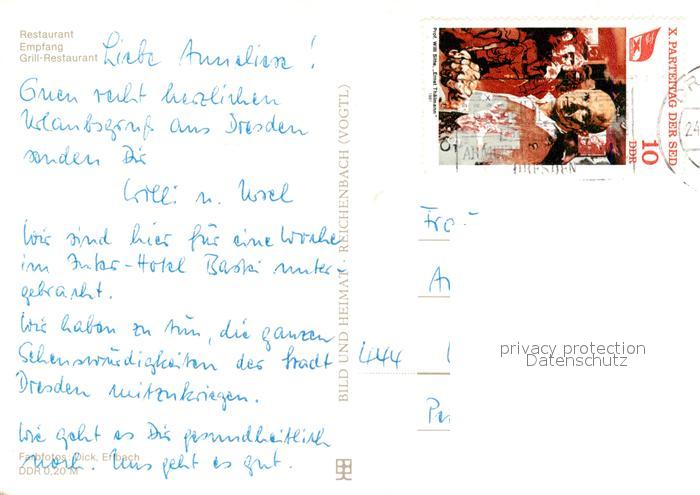 Restaurant
Empfang
Grill-Restaurant
Liebe Anneliese!
Einen recht herzlichen
Urlaubsgruß aus Dresden
senden Dir
Willi u. Ursel
Wir sind hier für eine Woche
im Inter-Hotel Bastei unter-
gebracht.
Wir haben zu tun, die ganzen
Sehenswürdigkeiten der Stadt
Dresden mitzukriegen.
Wie geht es Dir gesundheitlich
noch. Uns geht es gut.
Farbfotos: Dick, Erlbach
DDR 0,20 M
BILD UND HEIMAT · REICHENBACH (VOGTL)
Prof. Willi Sitte, „Ernst Thälmann"
1981
X. PARTEITAG DER SED
10
DDR
DRESDEN
24
444
privacy protection
Datenschutz